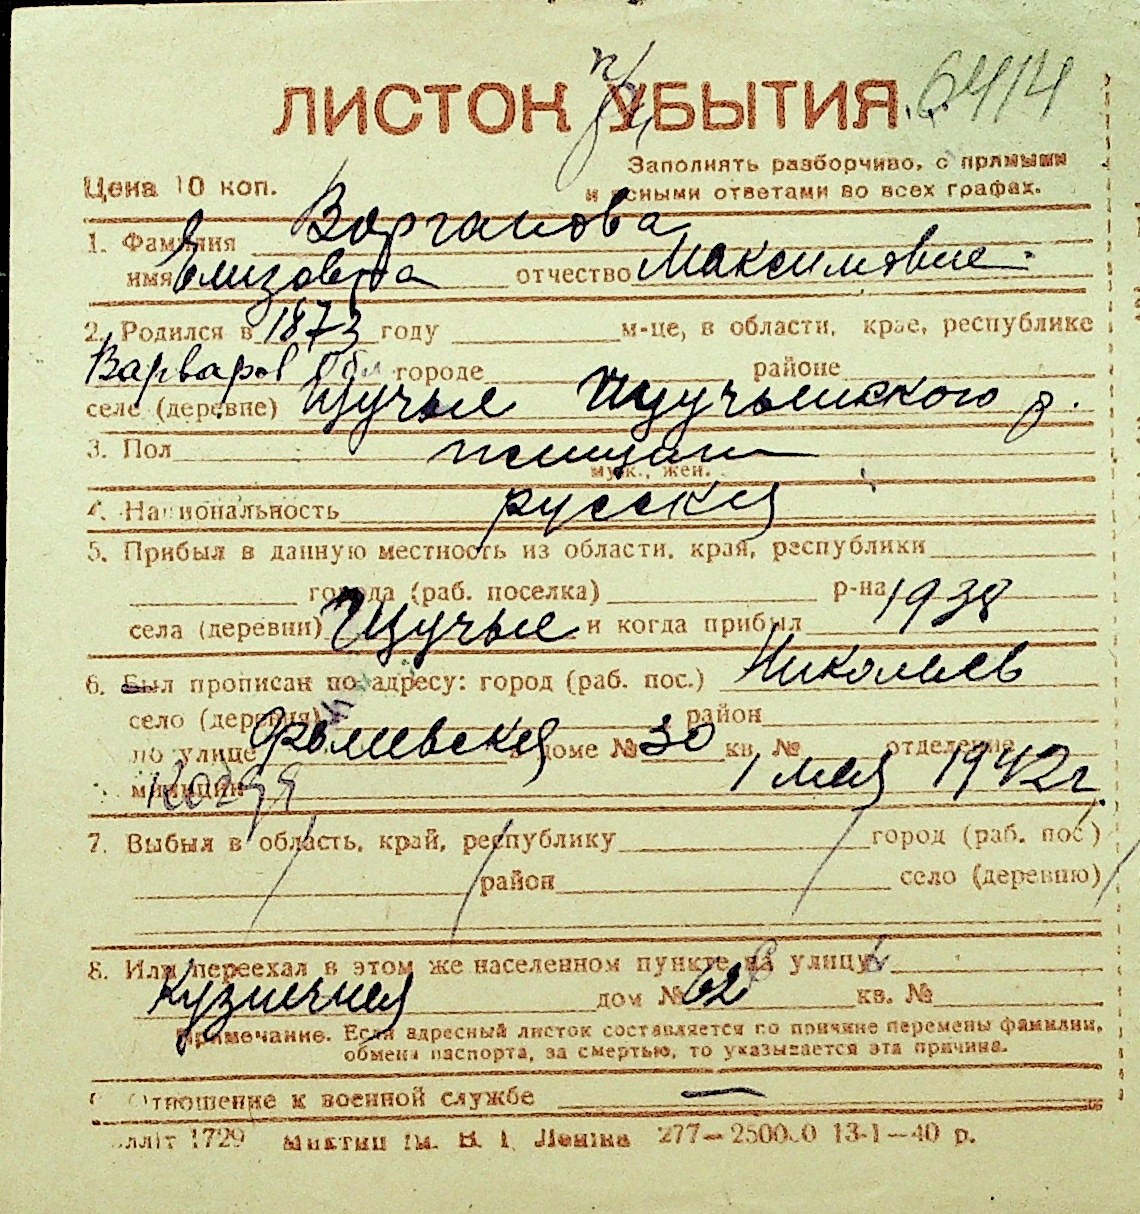 ЛИСТОК УБЫТИЯ 6414
Заполнять разборчиво, с прямыми
Цена 10 коп. и ясными ответами во всех графах.
1. Фамилия Варганова
имя Елизовета отчество Максимовна
2. Родился в 1873 году м-це, в области, крае, республике
Варваров Обл городе районе
селе (деревне) Щучье Щучьенского р.
3. Пол женщин
муж., жен.
4. Национальность русская
5. Прибыл в данную местность из области, края, республики
города (раб. поселка) р-на
села (деревни) Щучье и когда прибыл 1938
6. Был прописан по адресу: город (раб. пос.) Николаев
село (деревня) район
по улице в доме № 30 кв. № отделение
милиции 1 мая 1942 г.
7. Выбыл в область, край, республику город (раб. пос.)
район село (деревню)
8. Или переехал в этом же населенном пункте на улицу
Кузнечная дом № 62 кв. №
Примечание. Если адресный листок составляется по причине перемены фамилии,
обмена паспорта, за смертью, то указывается эта причина.
9. Отношение к военной службе —
1729 им. В. І. Леніна 277—250000 13-1—40 р.